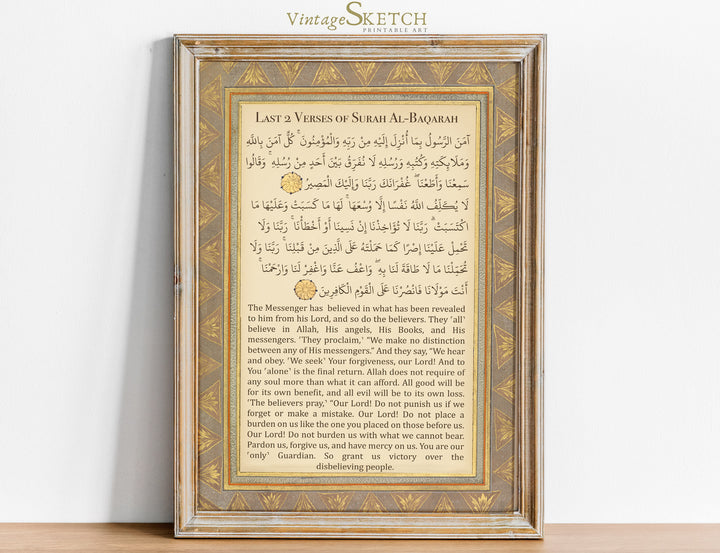 VintageSKETCH
PRINTABLE ART
LAST 2 VERSES OF SURAH AL-BAQARAH
آمَنَ الرَّسُولُ بِمَا أُنْزِلَ إِلَيْهِ مِنْ رَبِّهِ وَالْمُؤْمِنُونَ ۚ كُلٌّ آمَنَ بِاللَّهِ
وَمَلَائِكَتِهِ وَكُتُبِهِ وَرُسُلِهِ لَا نُفَرِّقُ بَيْنَ أَحَدٍ مِنْ رُسُلِهِ ۚ وَقَالُوا
سَمِعْنَا وَأَطَعْنَا ۖ غُفْرَانَكَ رَبَّنَا وَإِلَيْكَ الْمَصِيرُ
لَا يُكَلِّفُ اللَّهُ نَفْسًا إِلَّا وُسْعَهَا ۚ لَهَا مَا كَسَبَتْ وَعَلَيْهَا مَا
اكْتَسَبَتْ ۗ رَبَّنَا لَا تُؤَاخِذْنَا إِنْ نَسِينَا أَوْ أَخْطَأْنَا ۚ رَبَّنَا وَلَا
تَحْمِلْ عَلَيْنَا إِصْرًا كَمَا حَمَلْتَهُ عَلَى الَّذِينَ مِنْ قَبْلِنَا ۚ رَبَّنَا وَلَا
تُحَمِّلْنَا مَا لَا طَاقَةَ لَنَا بِهِ ۖ وَاعْفُ عَنَّا وَاغْفِرْ لَنَا وَارْحَمْنَا ۚ
أَنْتَ مَوْلَانَا فَانْصُرْنَا عَلَى الْقَوْمِ الْكَافِرِينَ
The Messenger has believed in what has been revealed
to him from his Lord, and so do the believers. They ‘all’
believe in Allah, His angels, His Books, and His
messengers. ‘They proclaim,’ “We make no distinction
between any of His messengers.” And they say, “We hear
and obey. ‘We seek’ Your forgiveness, our Lord! And to
You ‘alone’ is the final return. Allah does not require of
any soul more than what it can afford. All good will be
for its own benefit, and all evil will be to its own loss.
‘The believers pray,’ “Our Lord! Do not punish us if we
forget or make a mistake. Our Lord! Do not place a
burden on us like the one you placed on those before us.
Our Lord! Do not burden us with what we cannot bear.
Pardon us, forgive us, and have mercy on us. You are our
‘only’ Guardian. So grant us victory over the
disbelieving people.